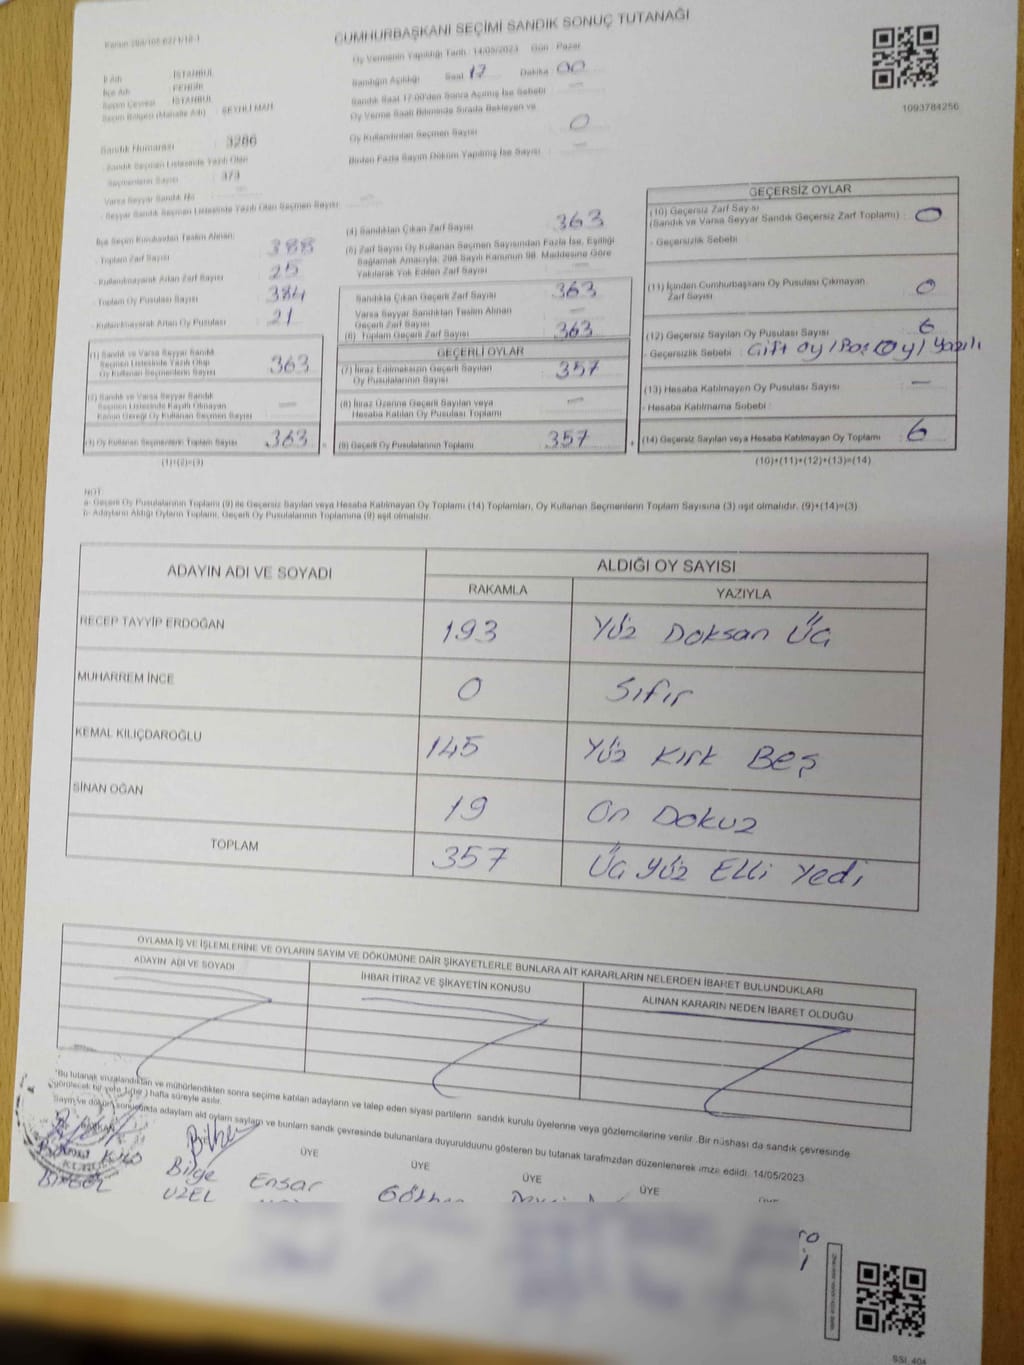 CUMHURBAŞKANI SEÇİMİ SANDIK SONUÇ TUTANAĞI
Oy Vermenin Yapıldığı Tarih : 14/05/2023 Gün : Pazar
Sandığın Açıldığı Saat 17 Dakika 00
Sandık Saat 17:00'den Sonra Açılmış İse Sebebi —
Oy Verme Saati Bitiminde Sırada Bekleyen ve
Oy Kullandırılan Seçmen Sayısı 0
Birden Fazla Sayım Döküm Yapılmış İse Sayısı —
1093784256
İl Adı : İSTANBUL
İlçe Adı : PENDİK
Seçim Çevresi : İSTANBUL
Seçim Bölgesi (Mahalle Adı) : ŞEYHLİ MAH
Sandık Numarası : 3286
Sandık Seçmen Listesinde Yazılı Olan
Seçmenlerin Sayısı : 373
Varsa Seyyar Sandık No —
- Seyyar Sandık Seçmen Listesinde Yazılı Olan Seçmen Sayısı: —
İlçe Seçim Kurulundan Teslim Alınan:
- Toplam Zarf Sayısı 388
- Kullanılmayarak Artan Zarf Sayısı 25
- Toplam Oy Pusulası Sayısı 384
- Kullanılmayarak Artan Oy Pusulası 21
(1) Sandık ve Varsa Seyyar Sandık
Seçmen Listesinde Yazılı Olup
Oy Kullanan Seçmenlerin Sayısı 363
(2) Sandık ve Varsa Seyyar Sandık
Seçmen Listesinde Kayıtlı Olmayan
Kanun Gereği Oy Kullanan Seçmenlerin Sayısı —
(3) Oy Kullanan Seçmenlerin Toplam Sayısı 363
(1)+(2)=(3)
(4) Sandıktan Çıkan Zarf Sayısı 363
(5) Zarf Sayısı Oy Kullanan Seçmen Sayısından Fazla İse, Eşitliği
Sağlamak Amacıyla, 298 Sayılı Kanunun 98. Maddesine Göre
Yakılarak Yok Edilen Zarf Sayısı —
Sandıkta Çıkan Geçerli Zarf Sayısı 363
Varsa Seyyar Sandıktan Teslim Alınan
Geçerli Zarf Sayısı —
(6) Toplam Geçerli Zarf Sayısı 363
GEÇERLİ OYLAR
(7) İtiraz Edilmeksizin Geçerli Sayılan
Oy Pusulasının Sayısı 357
(8) İtiraz Üzerine Geçerli Sayılan veya
Hesaba Katılan Oy Pusulası Toplamı —
(9) Geçerli Oy Pusulalarının Toplamı 357
GEÇERSİZ OYLAR
(10) Geçersiz Zarf Sayısı
(Sandık ve Varsa Seyyar Sandık Geçersiz Zarf Toplamı) : 0
- Geçersizlik Sebebi :
(11) İçinden Cumhurbaşkanı Oy Pusulası Çıkmayan
Zarf Sayısı 0
(12) Geçersiz Sayılan Oy Pusulası Sayısı 6
- Geçersizlik Sebebi : Çift oy / Boş oy / Yazılı
(13) Hesaba Katılmayan Oy Pusulası Sayısı —
- Hesaba Katılmama Sebebi :
(14) Geçersiz Sayılan veya Hesaba Katılmayan Oy Toplamı 6
(10)+(11)+(12)+(13)=(14)
NOT:
a- Geçerli Oy Pusulalarının Toplamı (9) ile Geçersiz Sayılan veya Hesaba Katılmayan Oy Toplamı (14) Toplamları, Oy Kullanan Seçmenlerin Toplam Sayısına (3) eşit olmalıdır. (9)+(14)=(3)
b- Adayların Aldığı Oyların Toplamı, Geçerli Oy Pusulalarının Toplamına (9) eşit olmalıdır.
ADAYIN ADI VE SOYADI ALDIĞI OY SAYISI
RAKAMLA YAZIYLA
RECEP TAYYİP ERDOĞAN 193 Yüz Doksan Üç
MUHARREM İNCE 0 Sıfır
KEMAL KILIÇDAROĞLU 145 Yüz Kırk Beş
SİNAN OĞAN 19 On Dokuz
TOPLAM 357 Üç Yüz Elli Yedi
OYLAMA İŞ VE İŞLEMLERİNE VE OYLARIN SAYIM VE DÖKÜMÜNE DAİR ŞİKAYETLERLE BUNLARA AİT KARARLARIN NELERDEN İBARET BULUNDUKLARI
ADAYIN ADI VE SOYADI İHBAR İTİRAZ VE ŞİKAYETİN KONUSU ALINAN KARARIN NEDEN İBARET OLDUĞU
*Bu tutanak imzalandıktan ve mühürlendikten sonra seçime katılan adayların ve talep eden siyasi partilerin sandık kurulu üyelerine veya gözlemcilerine verilir. Bir nüshası da sandık çevresinde
görülecek bir yere 1(bir) hafta süreyle asılır.
Sayım ve döküm sonucunda adayların aldı oyların sayıları ve bunların sandık çevresinde bulunanlara duyurulduunu gösteren bu tutanak tarafımızdan düzenlenerek imza edildi. 14/05/2023
ÜYE ÜYE ÜYE ÜYE
Bilge Ensar Gökhan
UZEL